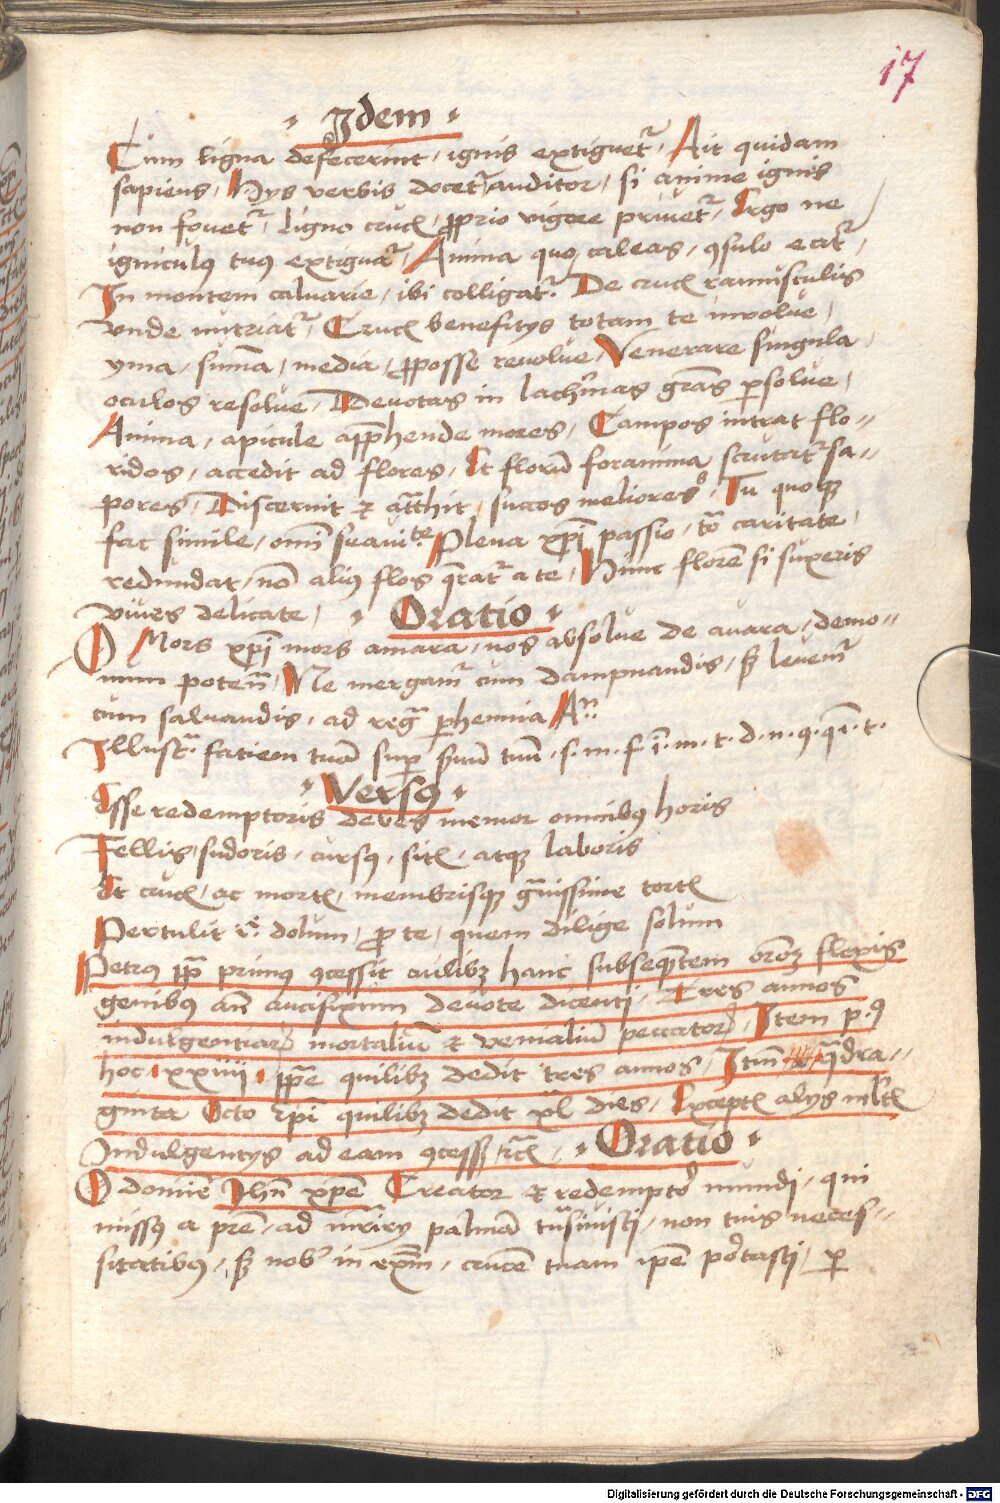 17
· Idem ·
Cum ligna defecerint, ignis extiguet᷑, Ait quidam
sapiens, Hys verbis docet᷑ auditor, si anime ignis
non fovet᷑, ligno cruc, ꝓprio vigore privet᷑, Ergo ne
igniculꝰ tuꝰ extiguat᷑, Anima quo caleas, ꝯsulo
In montem calvarie, ibi colligat᷑. De cruc ramusculis
vnde nutriat᷑, Cruc benefitys totam te involve,
yma, sum̄a, media, ꝓposse revolve, Venerare singula,
oculos resolve, Devotas in lachrimas gra͞s ꝑsolve,
Anima, apicule app̄hende mores, Campos intrat flo-
ridos, accedit ad flores, Et floru͞ foramina scrutat᷑ sa-
pores, Discernit et att͞hit, succos meliores, Tu quoqꝫ
fac simile, om͞i suauite. Plena xp͞i passio, to͞ caritate,
redundat, no͞ aliꝰ flos q͞rat᷑ a te, Hunc flore͞ si suxeris
vives delicate, · Oratio ·
O Mors xp͞i mors amara, nos absolve de avara, demo-
num poten͞, Ne mergam᷑ cum dampnandis, sꝫ levem᷑
cum salvandis, ad reg͞ ꝑhennia An͞
Illust᷑. fatiem tua͞ suꝑ s͞vum tuu͞ · s. m. f. i͞. m. t. d. n. q. q͞i. t.
· Versꝰ ·
Esse redemptoris debes memor omnibꝰ horis
Fellis, sudoris, cursꝰ, sit, atqꝫ laboris
Et cruc, ac mort, membrisqꝫ g͞vissime tort
Pertulit dolum, ꝓ te, quem dilige solum
Petrꝰ pp͞a primꝰ ꝯcessit cuilibꝫ hanc subseque͞tem oro͞em flexis
genibꝰ an͞ crucifixum devote dicenti, Tres annos
indulgentiar mortaliu͞ et venialiu͞ peccator, Item p.
hoc · xxiiii · pp͞e quilibꝫ dedit tres annos, Item͞ q͞dra-
ginta Octo ep͞i quilibꝫ dedit xl dies, Except alys mult
Indulgentys ad eam ꝯcess · Oratio ·
O domine͞ Jh͞u xp͞e Creator et redemptor mundi, qui
missꝰ a pr͞e, ad m͞rirÿ palma͞ tu͞sivisti, non tuis neces-
sitatibꝰ, sꝫ nob in exm͞, crucem tuam ip͞e portasti, ꝑ
Digitalisierung gefördert durch die Deutsche Forschungsgemeinschaft - DFG